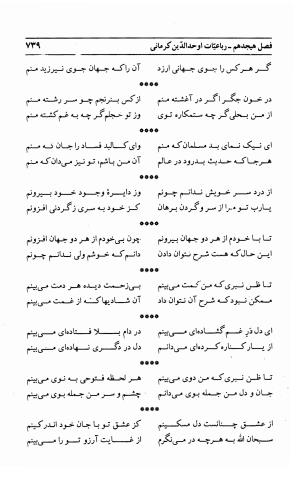 فصل هیجدهم ـ رباعیّات اوحدالدّین کرمانی ۷۳۹
گر هرکس را بجوی جهانی ارزد آن را که جهان جوی نیرزید منم
****
در خون جگر اگر در آغشته منم ازکس بنرنجم چو سر رشته منم
از من بحلی گر چه ستمکاره توی وز تو خجلم گر چه به غم کشته منم
****
ای نیک نمای بد مسلمان که منم وای کالبد فساد را جان نه منم
هرجا که حدیث بدرود در عالم آن من باشم، تو نیز می‌دان که منم
****
از درد سر خویش ندانم چونم وز دایرهٔ وجود خود بیرونم
یارب تو مرا از سر و گردن برهان کز خود به سری ز گردنی افزونم
****
تا با خودم از هر دو جهان بیرونم چون بی‌خودم از هر دو جهان افزونم
این حال که هست شرح نتوان دادن دانم که خوشم ولی ندانم چونم
****
تا ظن نبری که من کمت می‌بینم بی‌زحمت دیده هر دمت می‌بینم
ممکن نبود که شرح آن نتوان داد آن شادیها که از غمت می‌بینم
****
ای دل در غم گشاده‌ای می‌بینم در دام بلا فتاده‌ای می‌بینم
از یار کناره کرده‌ای می‌بینم دل در دگری نهاده‌ای می‌بینم
****
تا ظن نبری که من دوی می‌بینم هر لحظه فتوحی به نوی می‌بینم
جان و دل من جمله توی می‌دانم چشم و سر من جمله توی می‌بینم
****
از عشق چنانست دل مسکینم کز عشق تو با جان خود اندر کینم
سبحان الله به هرچه در می‌نگرم از غایت آرزو تو را می‌بینم